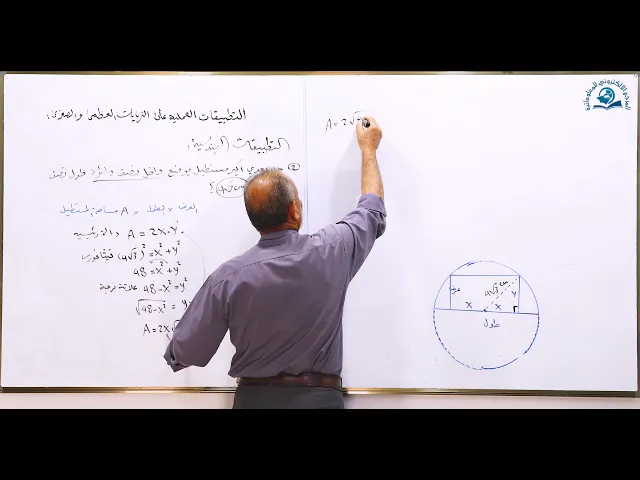 التطبيقات العملية على النهايات العظمى والصغرى:
التطبيقات الهندسية:
اكبر مستطيل يوضع داخل نصف دائرة طول نصف
4√3 cm ؟
العرض × الطول = A مساحة المستطيل
A = 2X·Y الدالة الرئيسية
(4√3)² = X² + Y² فيثاغورس
48 = X² + Y²
48 - X² = Y² علاقة فرعية
√48 - X² = Y
A = 2X √
A = 2√
عرض
4√3 cm
Y
X
X
طول
المنهج الالكتروني المعلوماتية